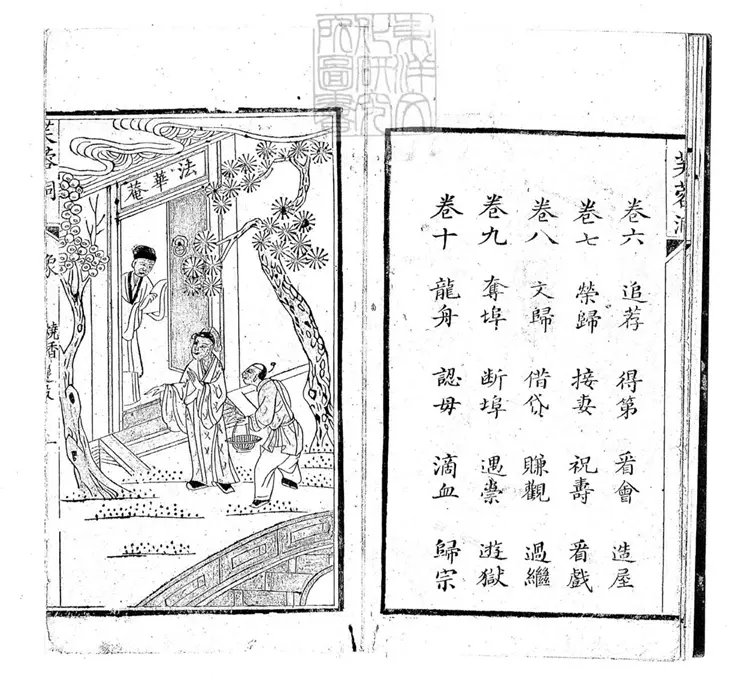 東洋文
化研究
所圖書
芙蓉洞
卷六 追荐 得第 看會 造屋
卷七 榮歸 接妻 祝壽 看戲
卷八 文歸 借贷 賺觀 過繼
卷九 奪埠 断埠 遇祟 遊獄
卷十 龍舟 認毋 滴血 歸宗
法華菴
芙蓉洞 像 燒香 一